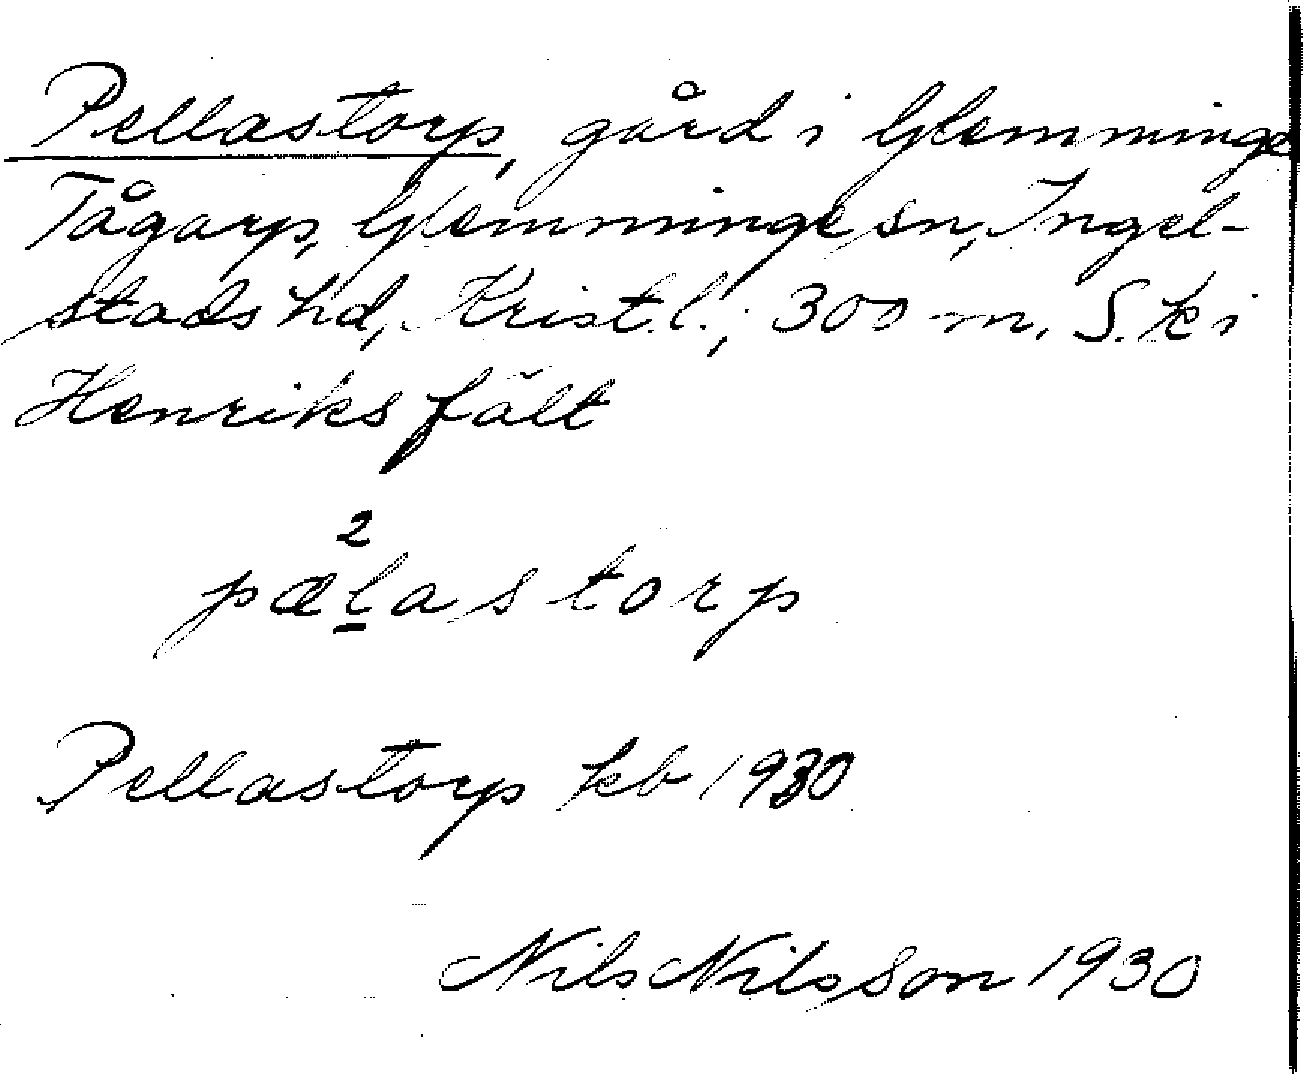 Pellastorp, gård i Glemminge
Tågarp, Glemminge sn, Ingel-
stads hd, Krist.l.; 300 m. S. k i
Henriksfält
2
pælastorp
Pellastorp kb 1930
Nils Nilsson 1930